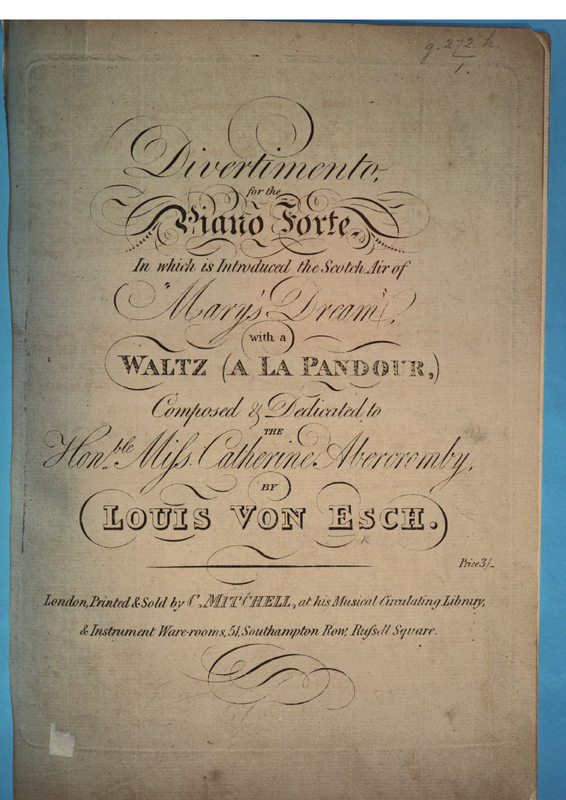 g.272.h.
1.
Divertimento,
for the
Piano Forte,
In which is Introduced the Scotch Air of
"Mary's Dream",
with a
WALTZ (A LA PANDOUR,)
Composed & Dedicated to
THE
Honble Miſs Catherine Abercromby,
BY
LOUIS VON ESCH.
Price 3/-
London, Printed & Sold by C. MITCHELL, at his Musical Circulating Library,
& Instrument Ware-rooms, 51, Southampton Row, Ruſsell Square.